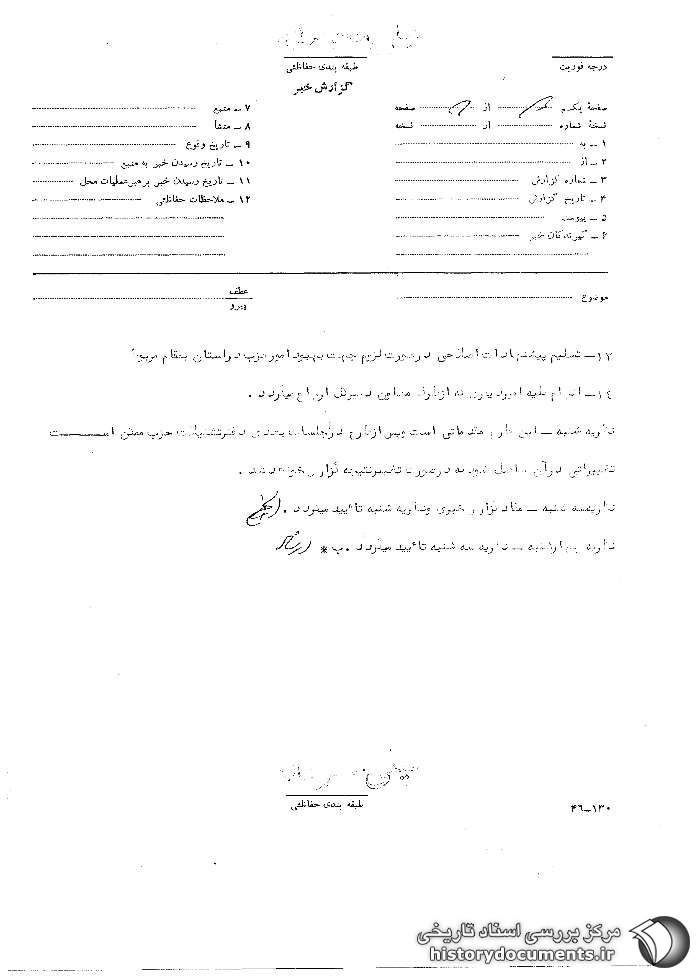 طبقه بندی حفاظتی
درجه فوریت
گزارش خبر
صفحه یکم از صفحه
نسخه شماره از نسخه
۱ ـ به
۲ ـ از
۳ ـ شماره گزارش
۴ ـ تاریخ گزارش
۵ ـ پیوست
۶ ـ گیرندگان خبر
۷ ـ منبع
۸ ـ منشأ
۹ ـ تاریخ وقوع
۱۰ ـ تاریخ رسیدن خبر به منبع
۱۱ ـ تاریخ رسیدن خبر برهبرعملیات محل
۱۲ ـ ملاحظات حفاظتی
موضوع
عطف
پیرو
۱۳ـ تسلیم پیشنهادات اصلاحی درصورت لزوم جهت بهبود امورحزب دراستان بمقام مربوط
۱٤ـ انجام کلیه امور از طرف معاون دبیرکل ارجاع میگردد .
نظریه شنبه ـ این طرح مقدماتی است وپس ازطرح درجلسات بعدی دفترتشکیلات حزب ممکن اســـت
تغییراتی درآن حاصل شود که درصورت تغییرنتیجه گزارش خواهد شد .
نظریه سه شنبه ـ مفاد گزارش خبری ونظریه شنبه تأیید میگردد .
نظریه چهارشنبه ـ نظریه سه شنبه تأیید میگردد . ب *
طبقه بندی حفاظتی
۴۶ـ۱۳۰
مرکز بررسی اسناد تاریخی
historydocuments.ir